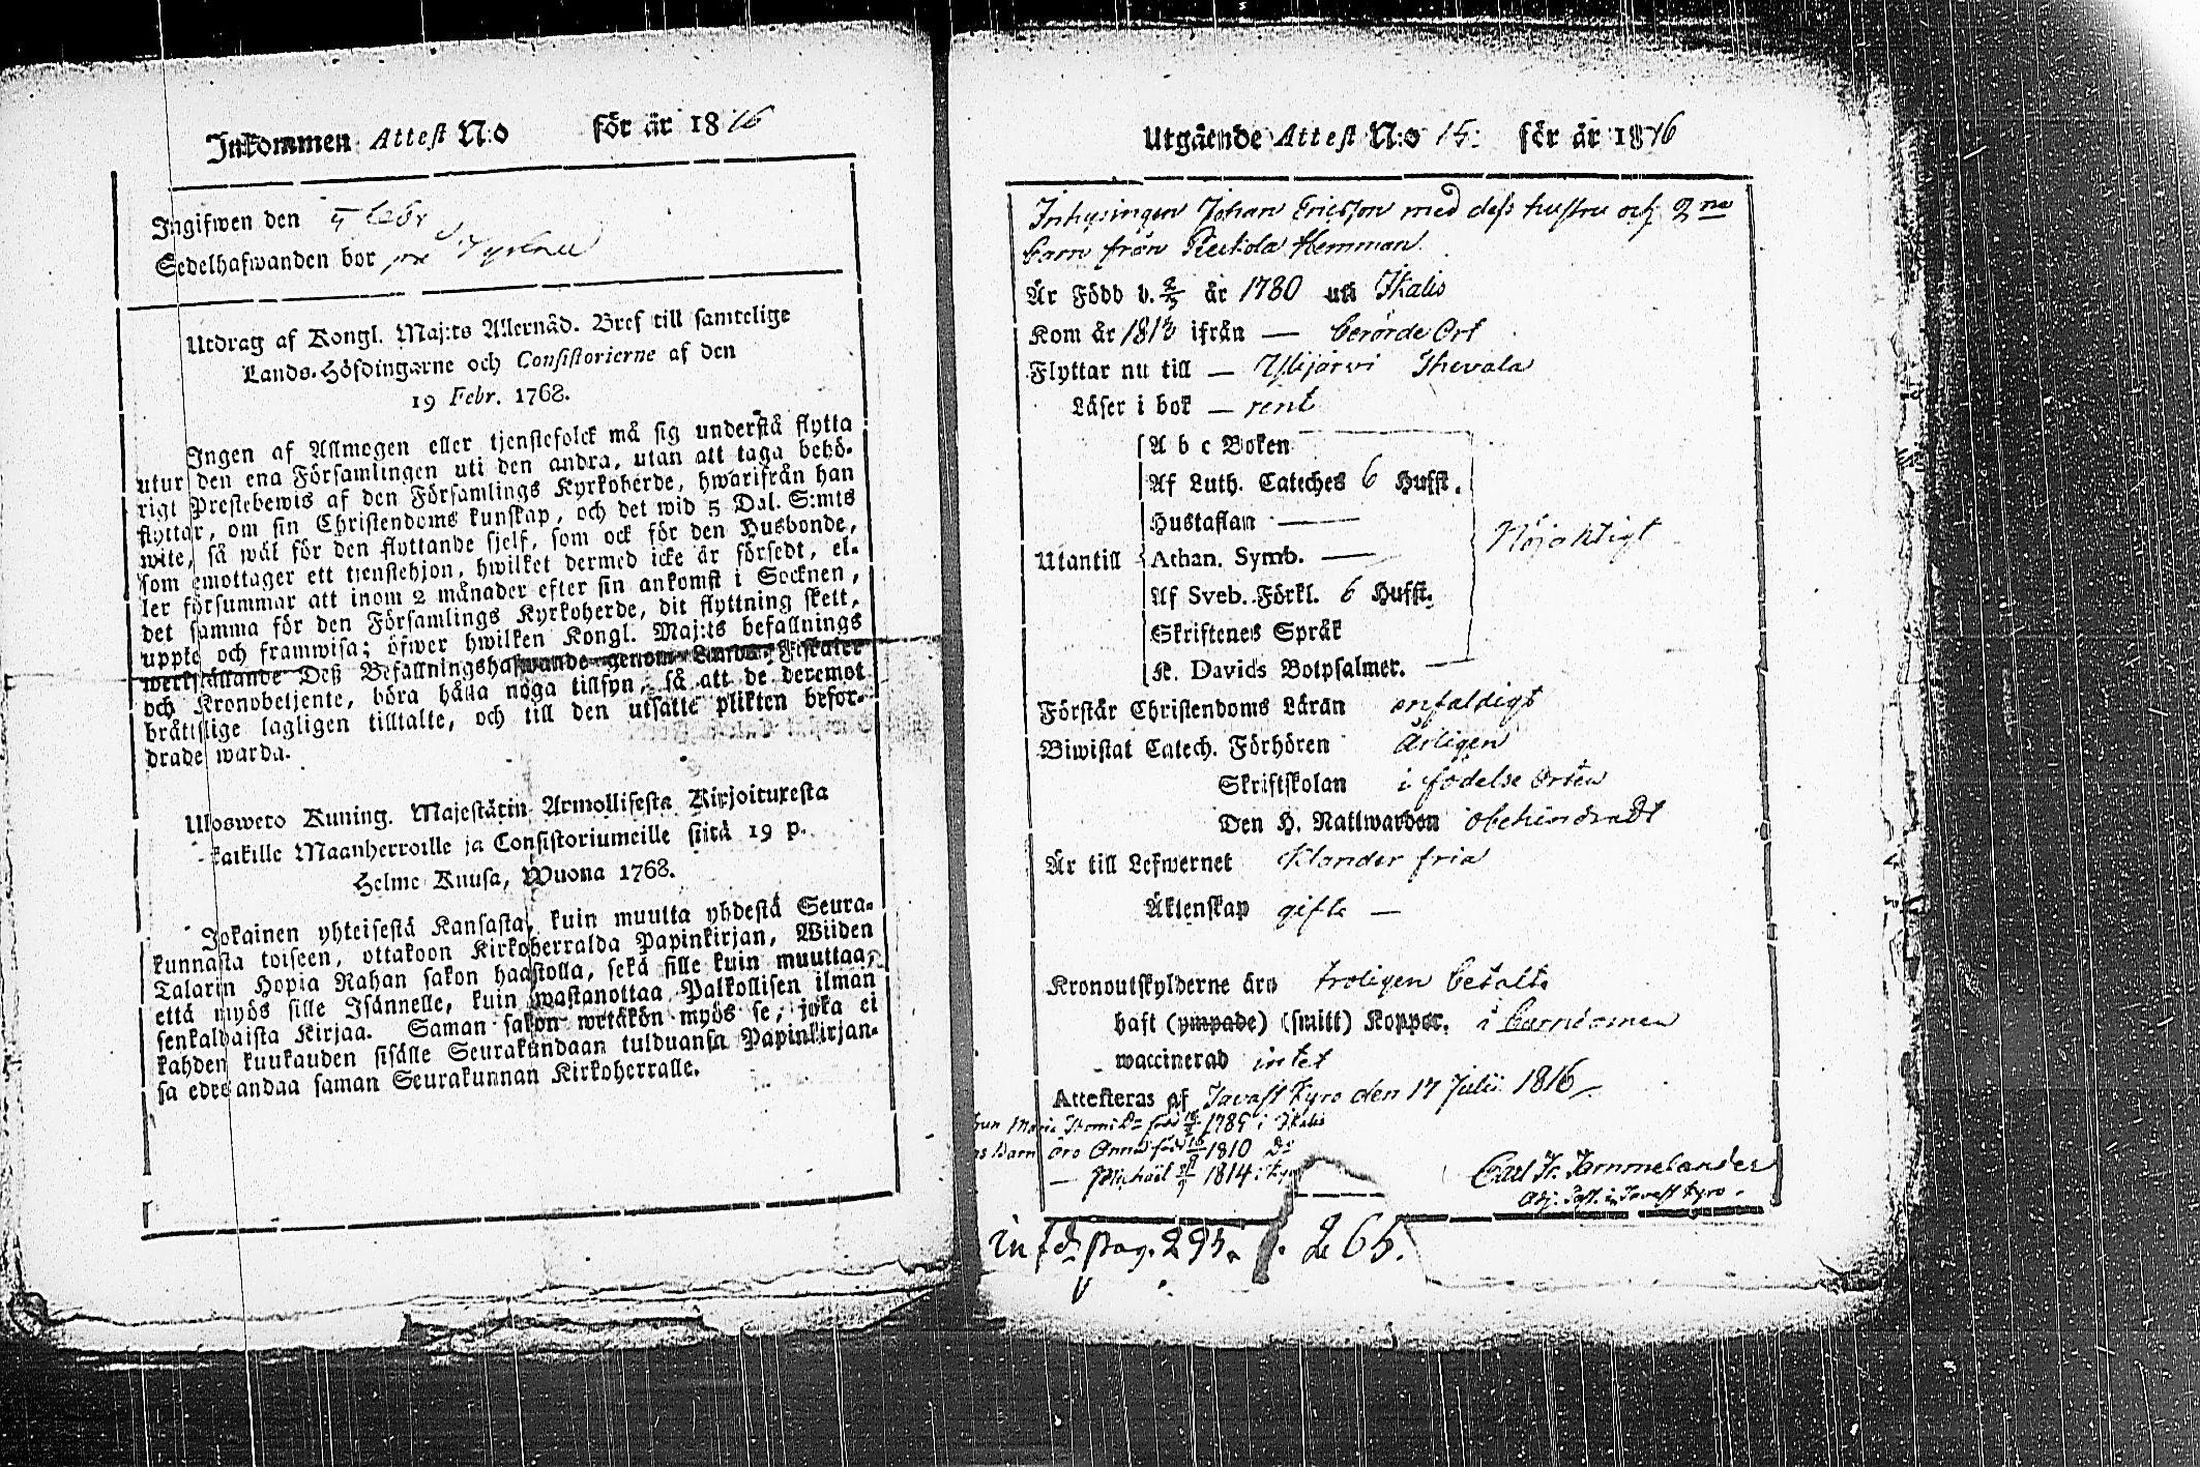 Inkommen Attest N:o för år 1816
Ingifwen den
Sedelhafwanden bor
Utdrag af Kongl. Maj:ts Allernåd. Bref till samtelige
Lands-Höfdingarne och Consistorierne af den
19 Febr. 1768.
Ingen af Allmogen eller tjenstefolck må sig understå flytta
utur den ena Församlingen uti den andra, utan att taga behö-
rigt Prestebewis af den Församlings Kyrkoherde, hwarifrån han
flyttar, om sin Christendoms kunskap, och det wid 5 Dal. S:mts
wite, så wäl för den flyttande sjelf, som ock för den Husbonde,
som emottager ett tjenstehjon, hwilket dermed icke är försedt, el-
ler försummar att inom 2 månader efter sin ankomst i Socknen,
det samma för den Församlings Kyrkoherde, dit flyttning skett,
uppte och framwisa; öfwer hwilken Kongl. Maj:ts befallnings
werkställande Deß Befallningshafwande genom Lands-Fiskaler
och Kronobetjente, böra hålla noga tillsyn, så att de deremot
bråttslige lagligen tilltalte, och till den utsatte plikten befor-
drade warda.
Ulosweto Kuning. Majestätin Armollisesta Kirjoituxesta
kaikille Maanherroille ja Consistoriumeille siitä 19 p.
Helme Kuusa, Wuona 1768.
Jokainen yhteisestä Kansasta, kuin muutta yhdestä Seura-
kunnasta toiseen, ottakoon Kirkoherralda Papinkirjan, Wiiden
Talarin Hopia Rahan sakon haastolla, sekä sille kuin muuttaa,
että myös sille Isännelle, kuin wastanottaa Palkollisen ilman
senkaldaista Kirjaa. Saman sakon wetäkön myös se, joka ei
kahden kuukauden sisälle Seurakundaan tulduansa Papinkirjan-
sa edesandaa saman Seurakunnan Kirkoherralle.
Utgående Attest N:o 15: för år 1816
Inhysingen Johan Ericsson med dess hustru och 2ne
barn från Hemman.
Är Född d. år 1780 uti Ikalis
Kom år ifrån — berörde Ort
Flyttar nu till — Ylöjärvi
Läser i bok — rent
A b c Boken
Af Luth. Cateches 6 Hufst.
Hustaflan —
Utantill Athan. Symb. — Nöjaktigt
Af Sveb. Förkl. 6 Hufst.
Skriftenes Språk
K. Davids Botpsalmer. —
Förstår Christendoms Läran enfaldigt
Biwistat Catech. Förhören Årligen
Skriftskolan i födelse Orten
Den H. Nattwarden obehindradt
Är till Lefwernet Klander fria
Äktenskap gifte —
Kronoutskylderne äro troligen betalte
haft (ympade) (smitt) Koppor. i barndomen
waccinerad intet
Attesteras af Tavast Kyro den 17 Julii 1816
Maria född 1785 i Ikalis
Barn äro Anna född 1810 Do
— Michaël 1814
Carl Fr. Tammelander
Adj. Past. i Tavast Kyro.
in fd pag. 295. p. 265.